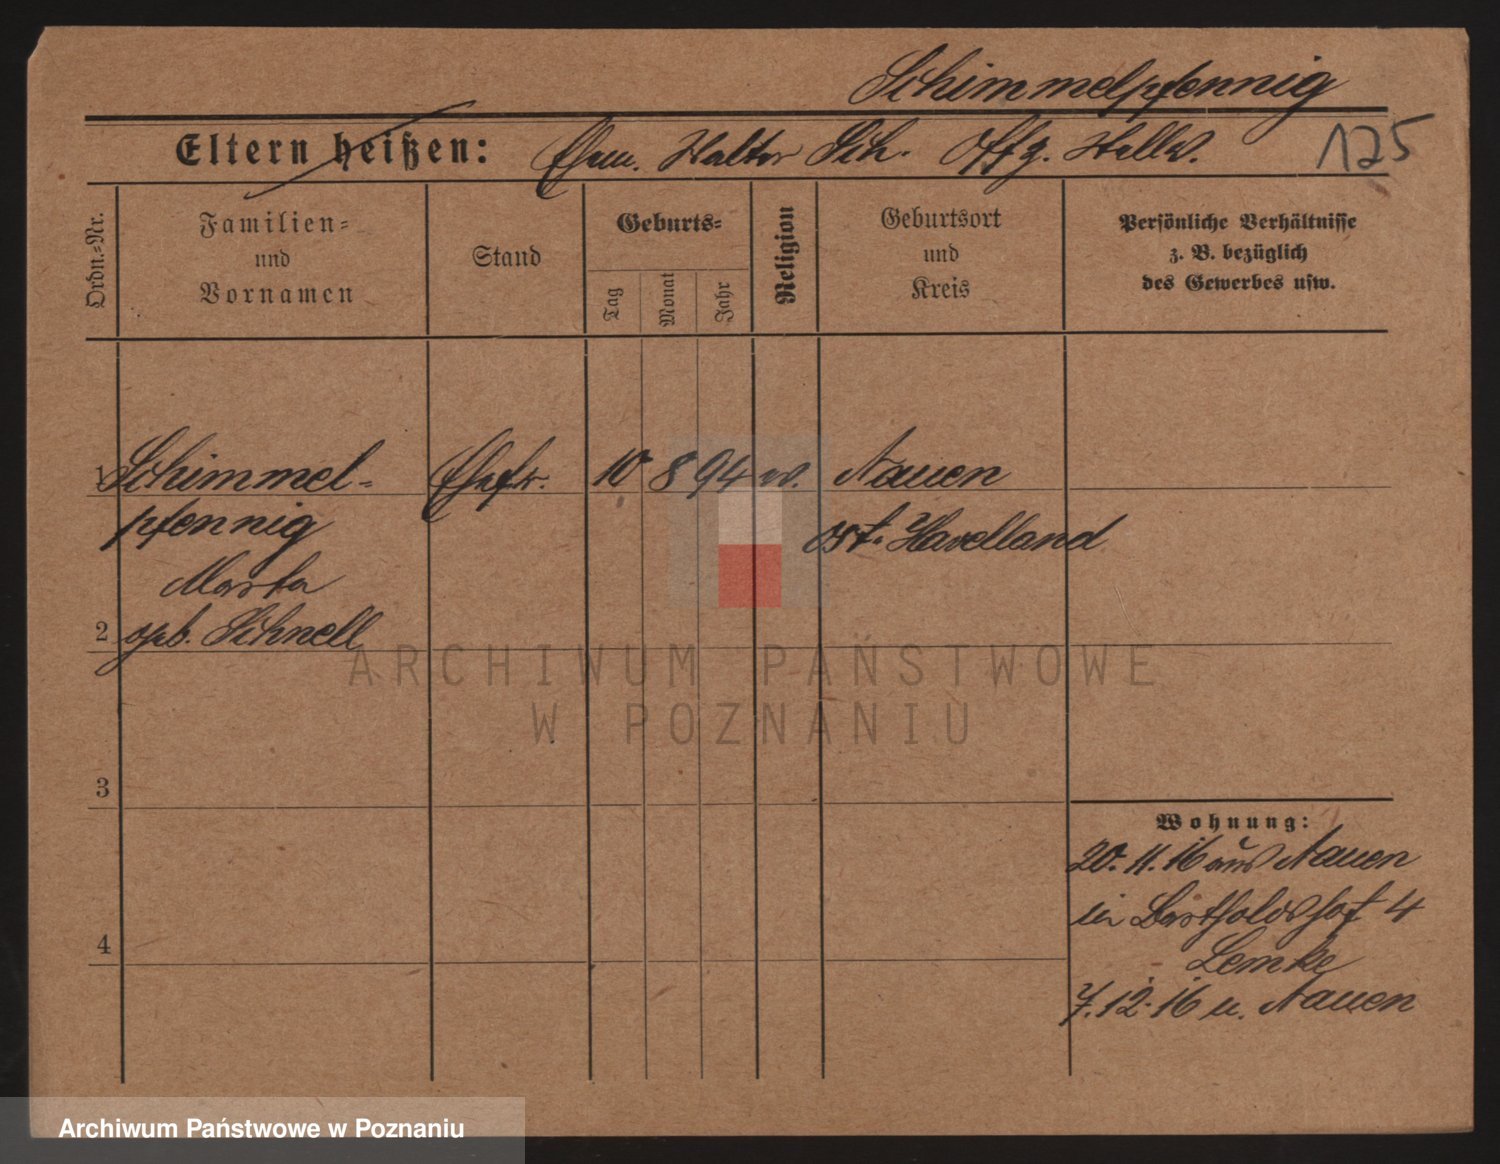 Schimmelpfennig
Eltern heißen: Ehem. Walter Sch. Offz. Stellv. 125
Ordn.-Nr.
Familien-
und
Vornamen
Stand
Geburts-
Tag
Monat
Jahr
Religion
Geburtsort
und
Kreis
Persönliche Verhältnisse
z. B. bezüglich
des Gewerbes usw.
1 Schimmel- Ehefr. 10 8 94 ev. Nauen
pfennig Ost-Havelland
Marta
2 geb. Schnell
ARCHIWUM PAŃSTWOWE
W POZNANIU
3
Wohnung:
20.11.16 aus Nauen
in Bartholdshof 4
4
Lemke
7.12.16 n. Nauen
Archiwum Państwowe w Poznaniu